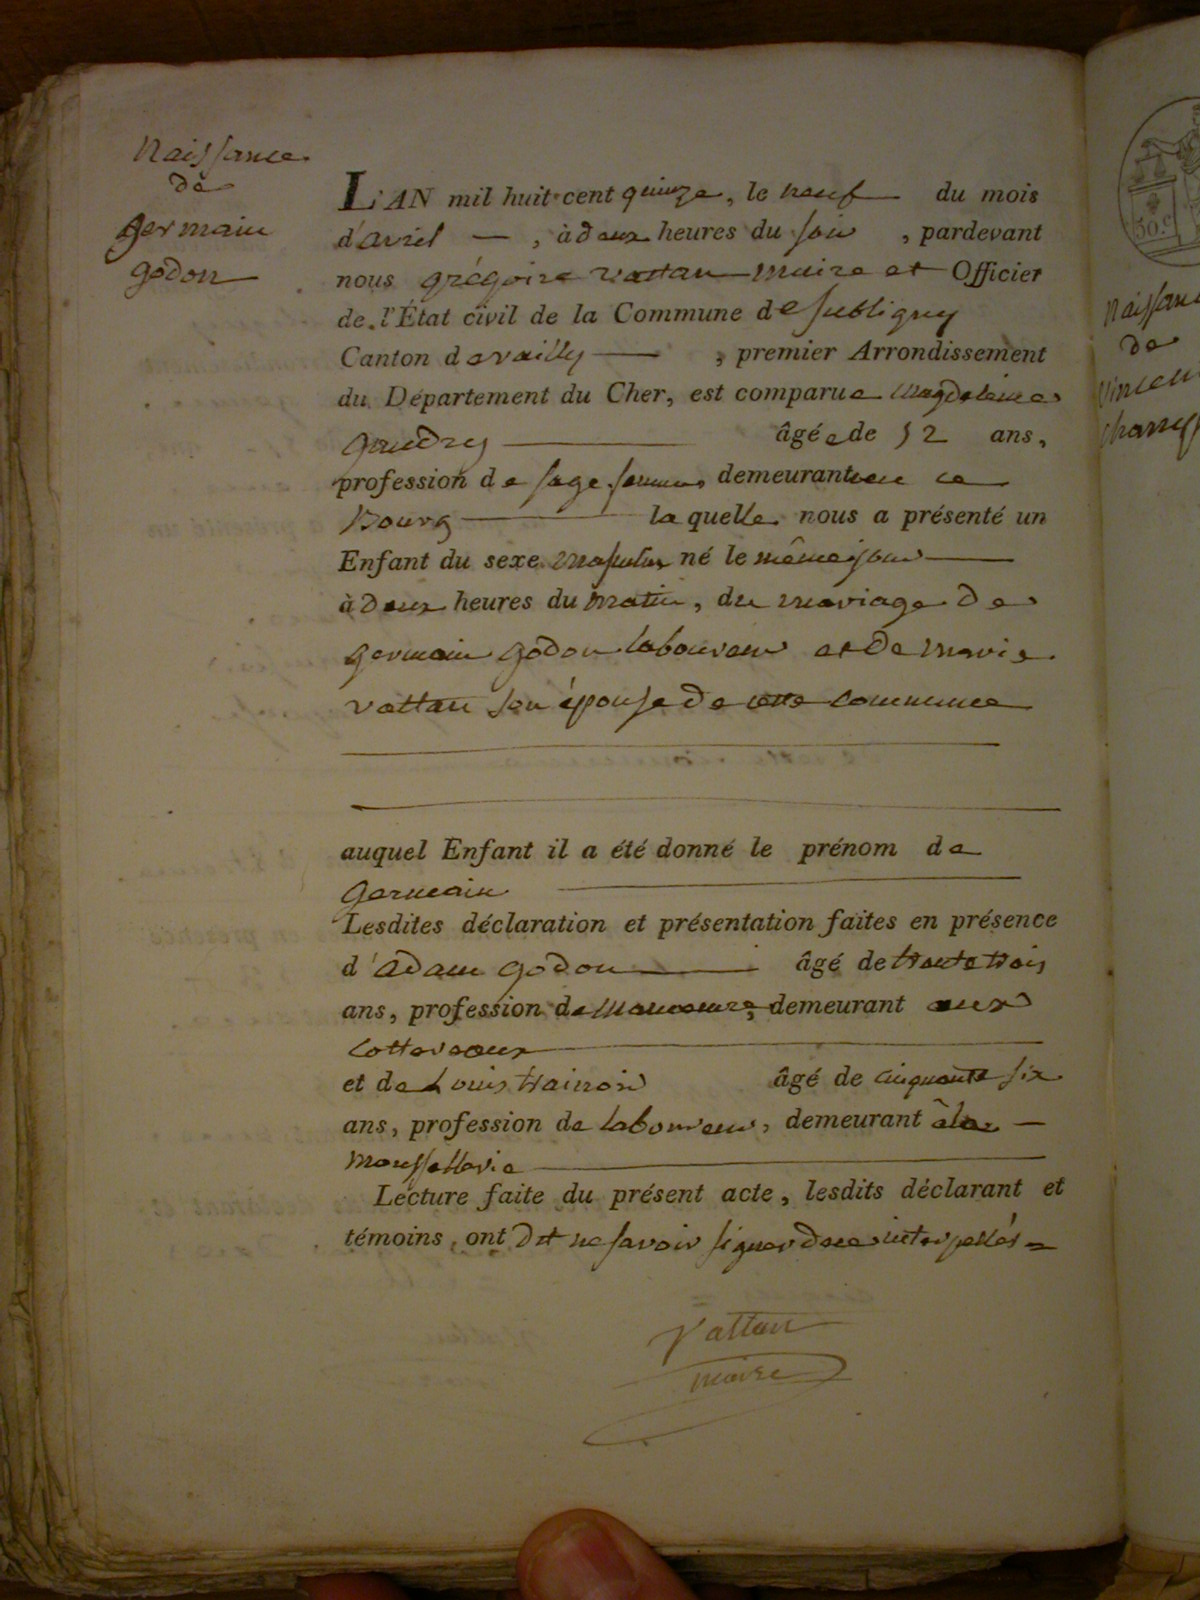 Naissance
de
germain
godon
L'AN mil huit cent quinze, le neuf du mois
d'avril —, à deux heures du soir, pardevant
nous grégoire vattan maire et Officier
de l'État civil de la Commune de subligny
Canton de vailly —, premier Arrondissement
du Département du Cher, est comparue magdeleine
gaudry — âgée de 52 ans,
profession de sage femme, demeurant en ce
Bourg — la quelle nous a présenté un
Enfant du sexe masculin né le même jour —
à deux heures du matin, du mariage de
germain godon laboureur et de marie
vattan son épouse de cette commune
auquel Enfant il a été donné le prénom de
germain —
Lesdites déclaration et présentation faites en présence
d'adam godon — âgé de trente trois
ans, profession de manoeuvre, demeurant aux
cottereaux —
et de Louis trainoir âgé de cinquante six
ans, profession de laboureur, demeurant à la —
moussellerie —
Lecture faite du présent acte, lesdits déclarant et
témoins, ont dit ne savoir signer de ce interpellés =
Vattan
maire
50.c
naissan
de
vincen